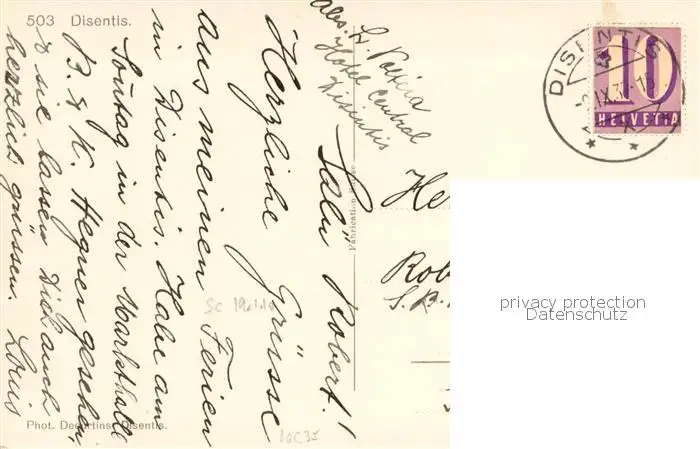 503 Disentis.
Abs. L.
Hotel Central
Disentis
Salü Robert!
Herzliche Grüsse
aus meinen Ferien
in Disentis. Habe am
Sonntag in der Markthalle
B. & K. Hegner gesehen,
& sie lassen Dich auch
herzlich grüssen. Louis
Phot. Decurtins, Disentis.
Fabrication Suisse
DISENTIS
10
HELVETIA
He
Rob
privacy protection
Datenschutz